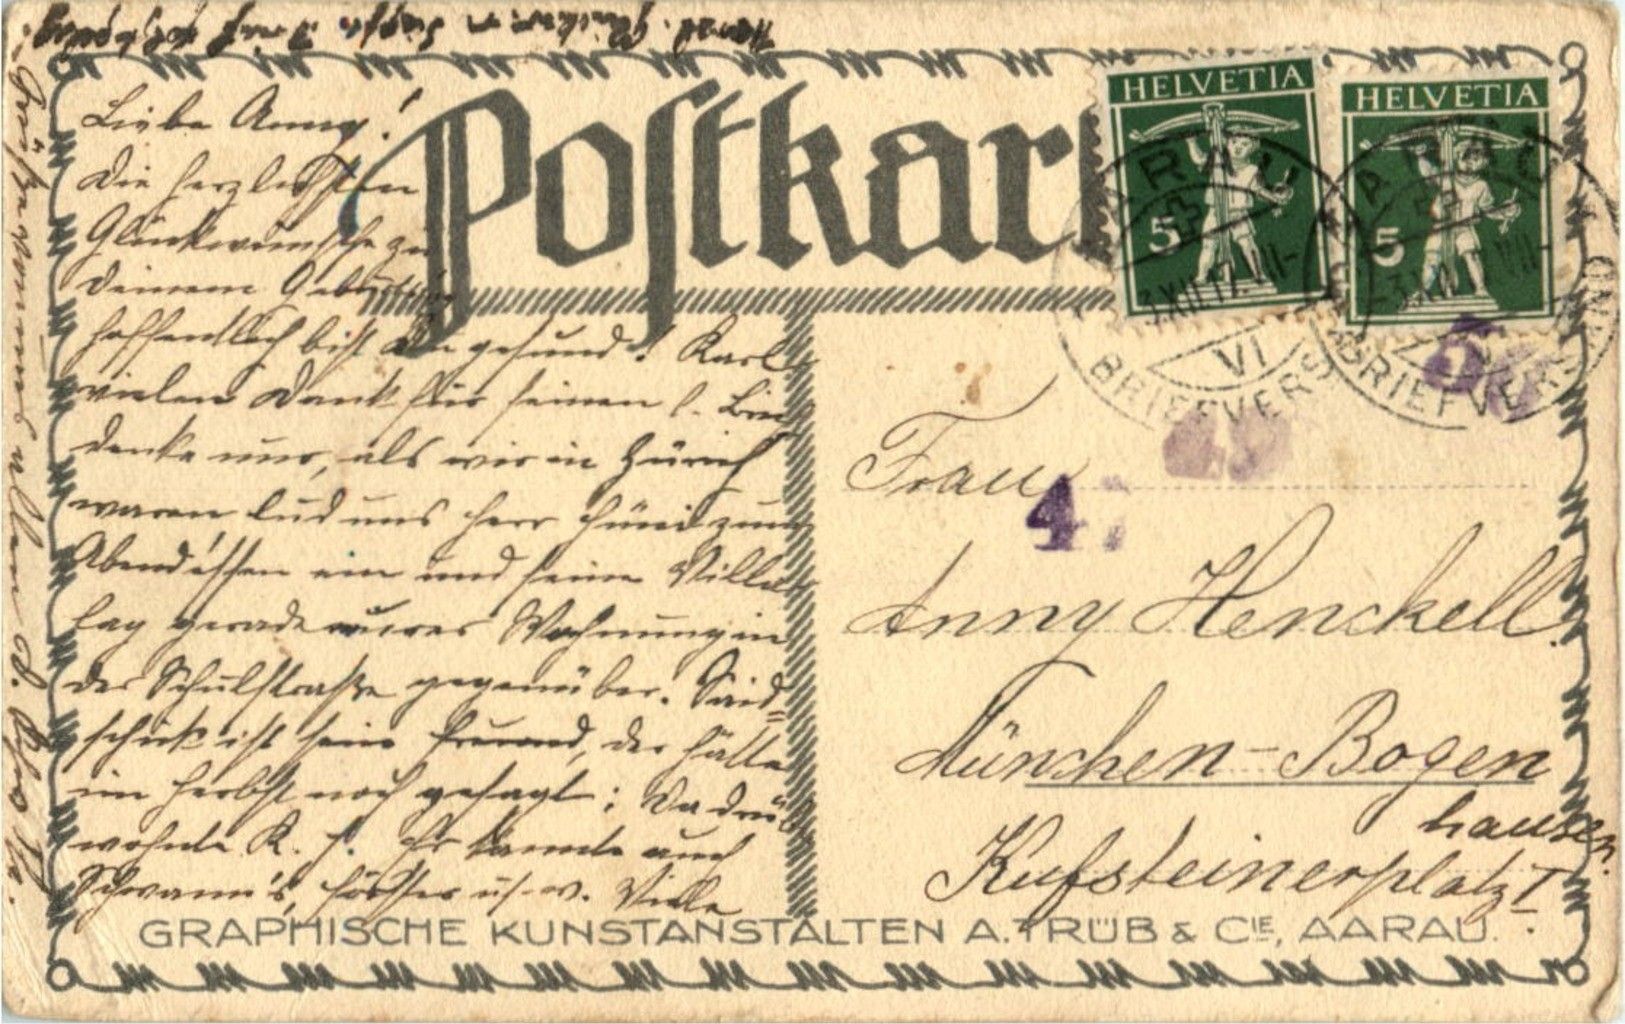 Postkar
HELVETIA
5
HELVETIA
5
AARAU
VI
BRIEFVERS
BRIEFVERS
Liebe Anny!
Die herzlichsten
Glückwünsche zu
Deinem Geburtstag
hoffentlich bist Du gesund! Karl
vielen Dank für seinen l. Brief
denke nur, als wir in Zürich
waren lud uns Herr Hüni zum
Abendessen ein und seine Villa
lag gerade unsrer Wohnung in
der Schulstraße gegenüber. Said=
schick ist sein Freund, der hätte
im Herbst noch gesagt: Da drüb
wohnte K. H. Er kannte auch
Schwann's, u.s.w. Viele
Grüße von uns allen
Frau
47
Anny Henckell
München-Bogen
hausen
Kufsteinerplatz I
GRAPHISCHE KUNSTANSTALTEN A. TRÜB & CIE, AARAU.